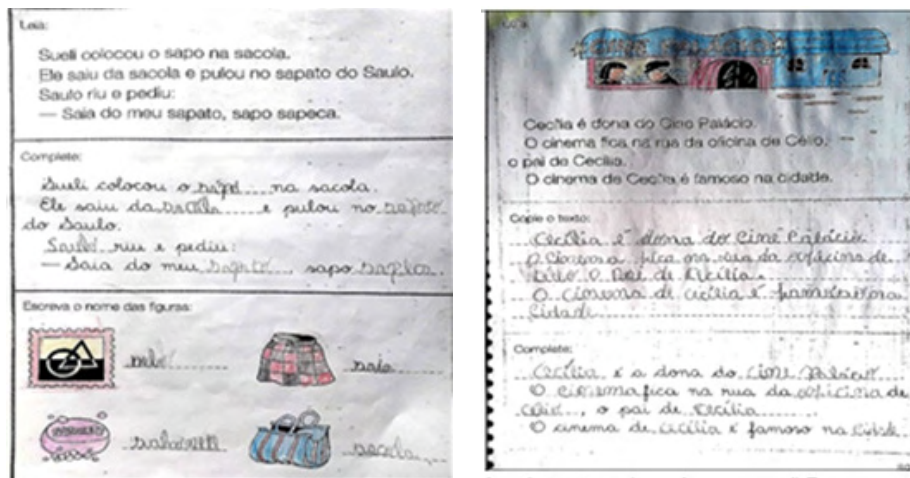 Leia:
Sueli colocou o sapo na sacola.
Ele saiu da sacola e pulou no sapato do Saulo.
Saulo riu e pediu:
— Saia do meu sapato, sapo sapeca.
Complete:
Sueli colocou o sapo na sacola.
Ele saiu da sacola e pulou no sapato
do Saulo.
Saulo riu e pediu:
— Saia do meu sapato, sapo
Escreva o nome das figuras:
selo saia
sabonete sacola
Cecília é dona do Cine Palácio.
O cinema fica na rua da oficina de Célio,
o pai de Cecília.
O cinema de Cecília é famoso na cidade.
Copie o texto:
Cecília é dona do Cine Palácio
O cinema fica na rua da oficina de
o pai de Cecília.
O cinema de cecília é
Cidade
Complete:
Cecília é a dona do cine Palácio
O cinema fica na rua da oficina de
célio, o pai de Cecília
O cinema de cecília é famoso na Cidade